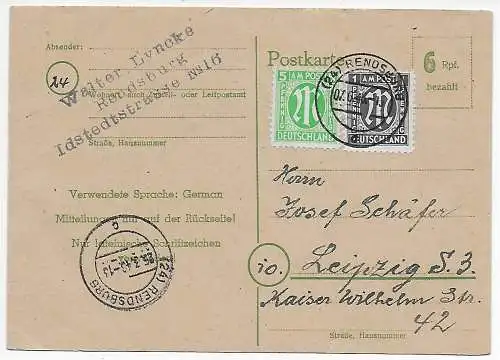 Absender:
Walter Lyncke
Rendsburg
Idstedtstrasse No16
24
Wohnort, auch Zustell- oder Leitpostamt
Straße, Hausnummer
Verwendete Sprache: German
Mitteilungen nur auf der Rückseite!
Nur lateinische Schriftzeichen
(24) RENDSBURG
c
Postkarte
6 Rpf.
bezahlt
5 AM POST
PFENNIG
DEUTSCHLAND
1 AM POST
DEUTSCHLAND
(24) RENDSBURG
Herrn
Josef Schäfer
10. Leipzig S. 3.
Kaiser Wilhelm Str.
42
Straße, Hausnummer